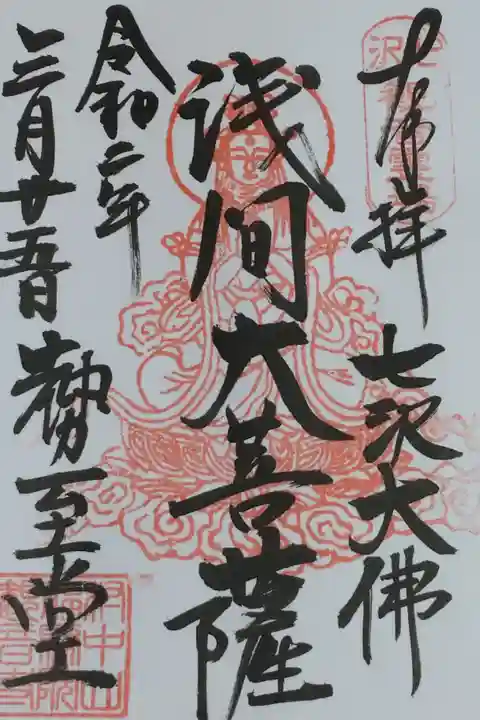 奉拝
七沢大佛
浅间大菩薩
令和二年
三月廿五日
勢至堂